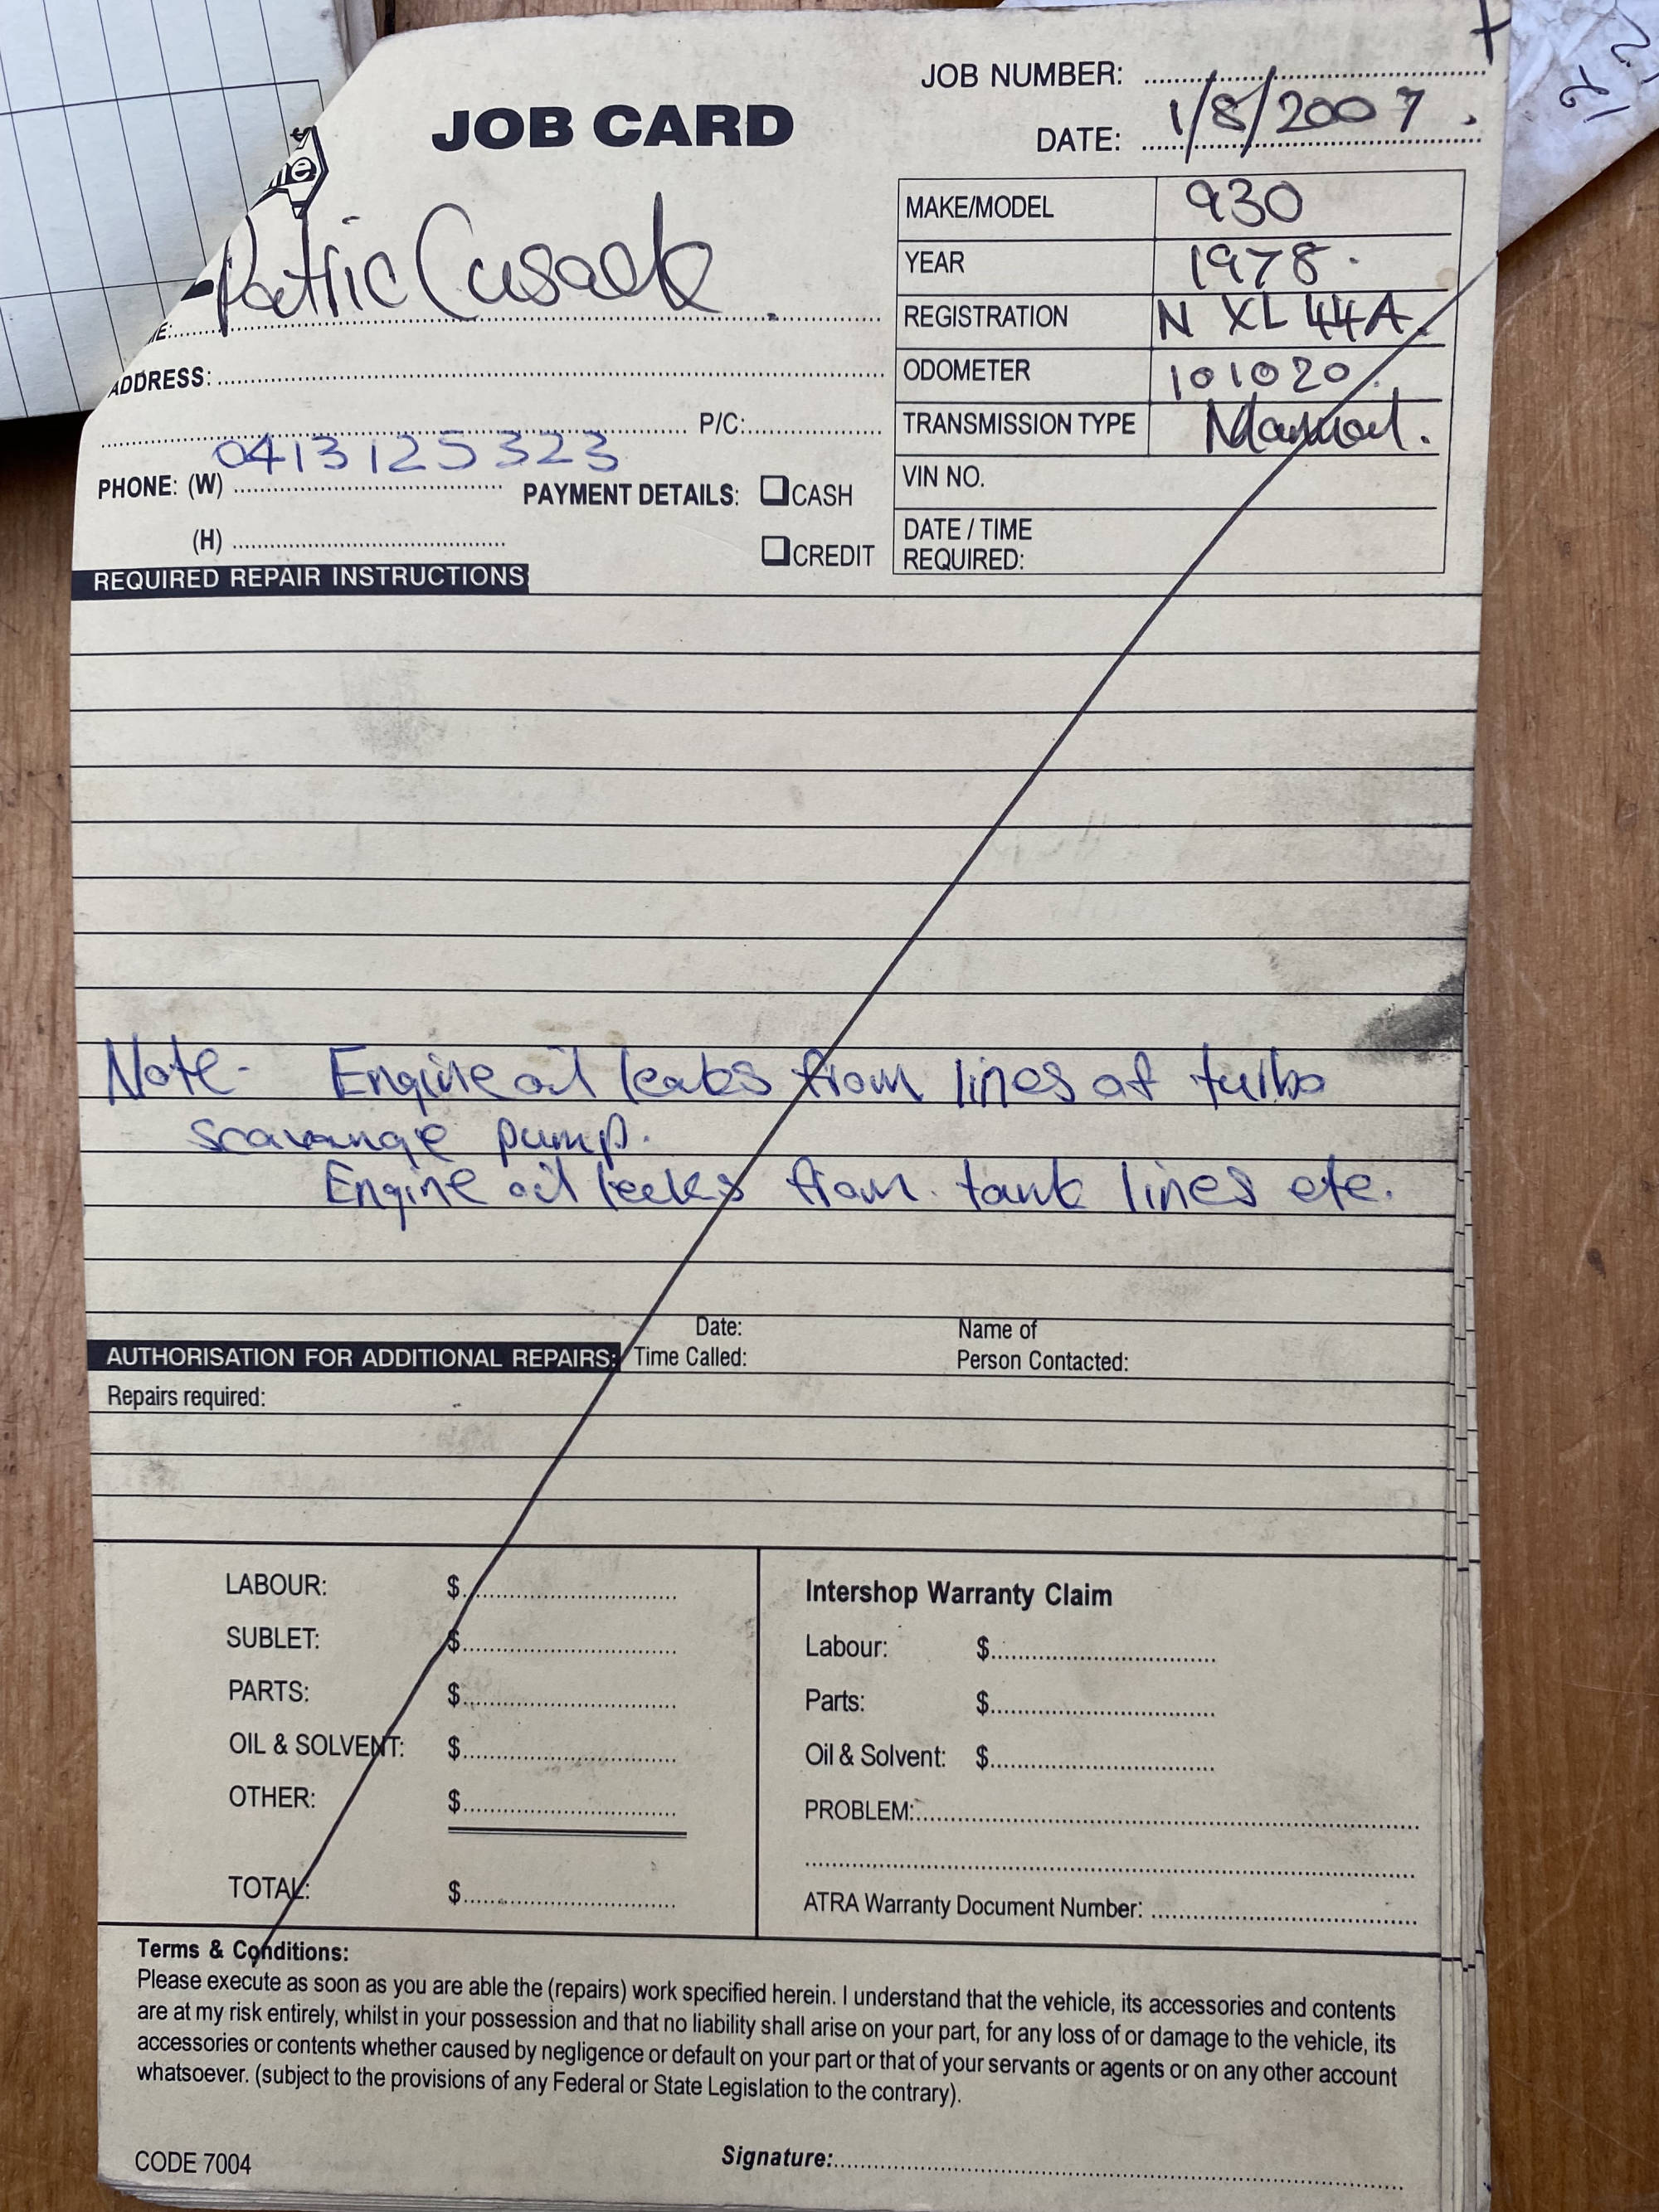 JOB CARD
JOB NUMBER:
DATE: 1/8/2007.
Patric Cusack.
ME:
ADDRESS:
P/C:
0413125323
PHONE: (W)
PAYMENT DETAILS: CASH
(H)
CREDIT
MAKE/MODEL 930
YEAR 1978.
REGISTRATION N XL 44A.
ODOMETER 101020.
TRANSMISSION TYPE Manual.
VIN NO.
DATE / TIME
REQUIRED:
REQUIRED REPAIR INSTRUCTIONS
Note- Engine oil leaks from lines at turbo
scavange pump.
Engine oil leeks from tank lines etc.
AUTHORISATION FOR ADDITIONAL REPAIRS:
Date:
Time Called:
Name of
Person Contacted:
Repairs required:
LABOUR: $
SUBLET: $
PARTS: $
OIL & SOLVENT: $
OTHER: $
TOTAL: $
Intershop Warranty Claim
Labour: $
Parts: $
Oil & Solvent: $
PROBLEM:
ATRA Warranty Document Number:
Terms & Conditions:
Please execute as soon as you are able the (repairs) work specified herein. I understand that the vehicle, its accessories and contents
are at my risk entirely, whilst in your possession and that no liability shall arise on your part, for any loss of or damage to the vehicle, its
accessories or contents whether caused by negligence or default on your part or that of your servants or agents or on any other account
whatsoever. (subject to the provisions of any Federal or State Legislation to the contrary).
CODE 7004
Signature: